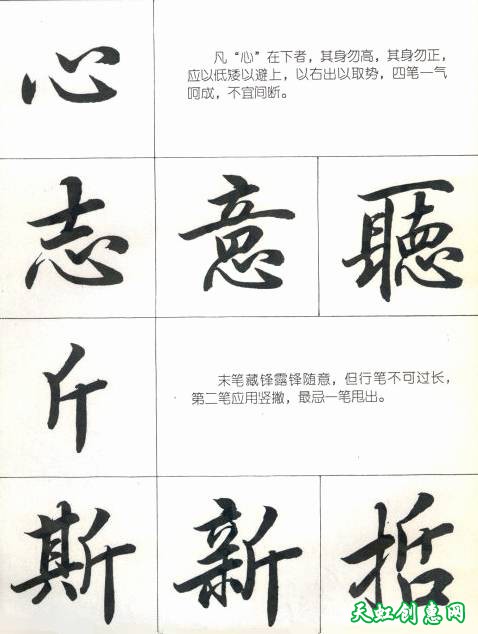 心
凡“心”在下者，其身勿高，其身勿正，
应以低矮以避上，以右出以取势，四笔一气
呵成，不宜间断。
志 意 聽
斤
末笔藏锋露锋随意，但行笔不可过长，
第二笔应用竖撇，最忌一笔甩出。
斯 新 哲
天虹创惠网